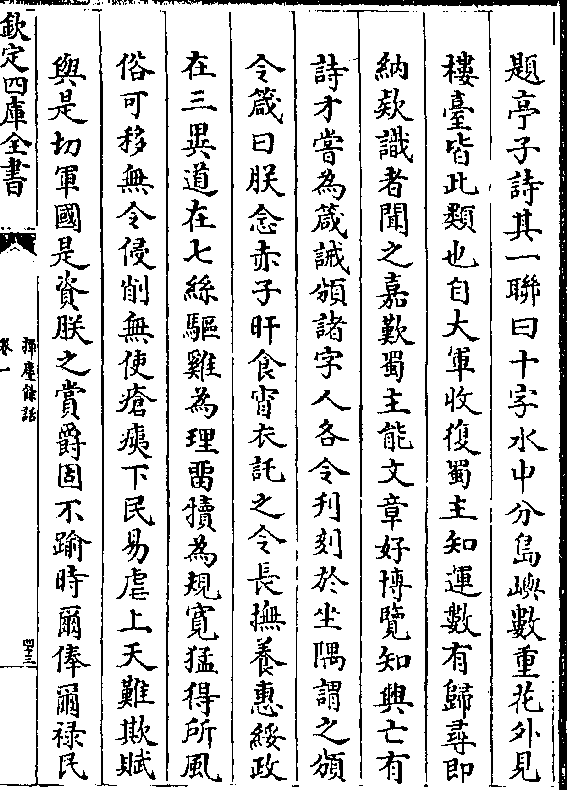 題亭子詩其一聯曰十字水中分島嶼數重花外見
樓臺皆此類也自大軍收復蜀主知運數有歸尋即
納欵識者聞之嘉歎蜀主能文章好博覽知興亡有
詩才嘗為箴誡頒諸字人各令刋刻於坐隅謂之頒
令箴曰朕念赤子旰食宵衣託之令長撫養惠綏政
在三異道在七絲驅雞為理畱犢為規寛猛得所風
俗可移無令侵削無使瘡痍下民易虐上天難欺賦
輿是切軍國是資朕之賞爵固不踰時爾俸爾祿民
欽定四庫全書
揮麈餘話
卷一
四十三